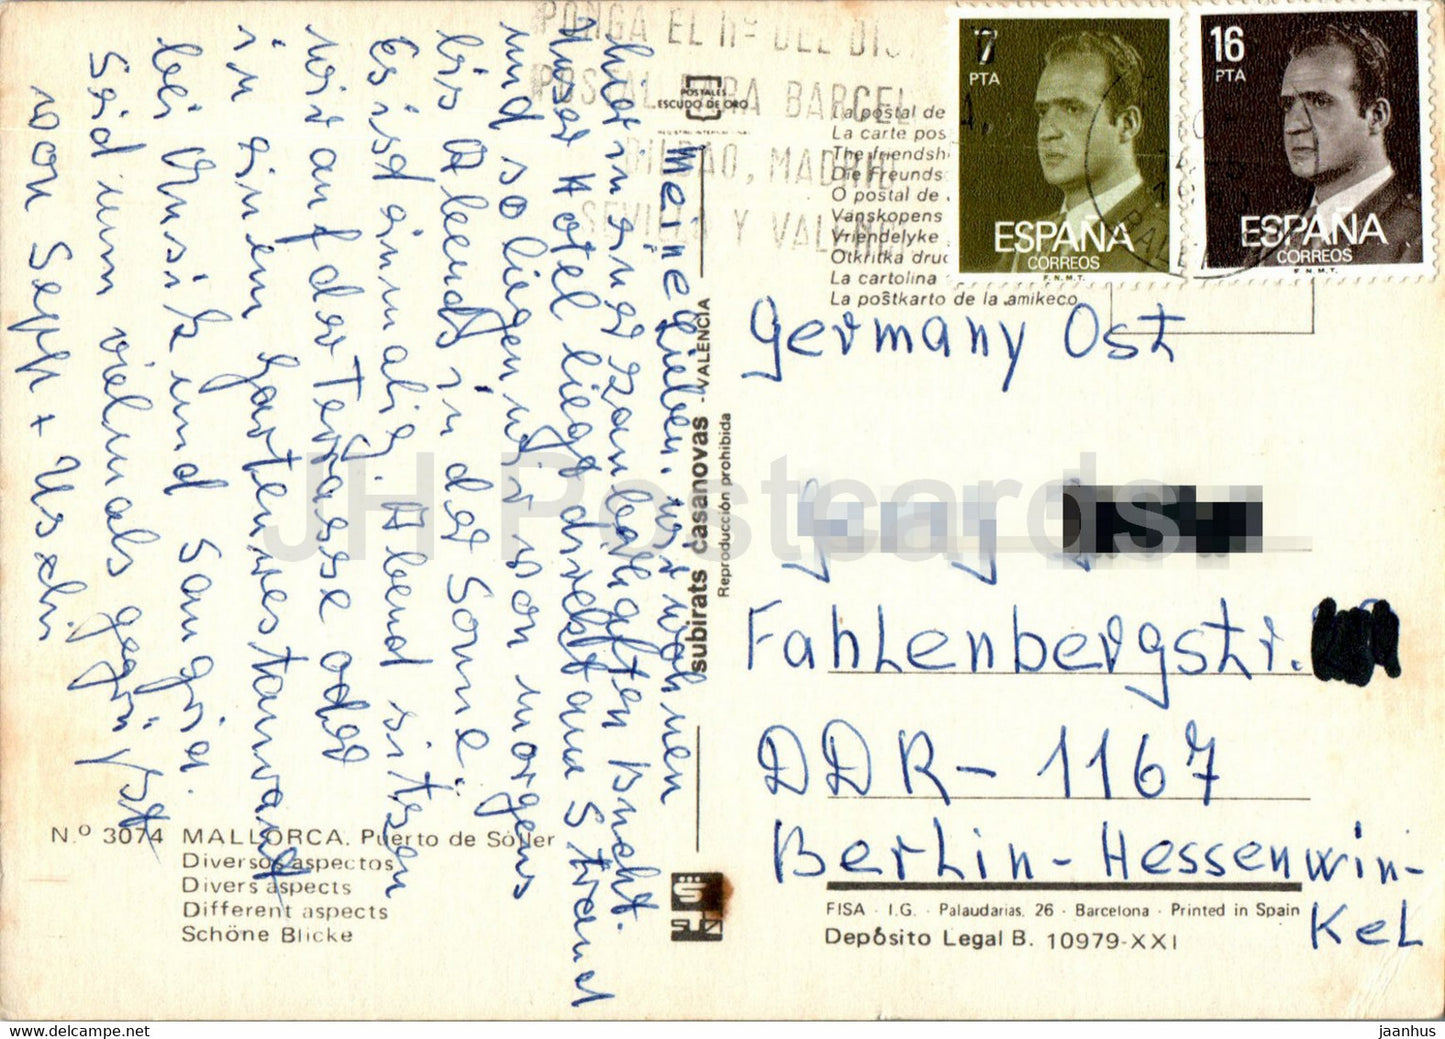 PONGA EL Nº DEL DIS
POSTAL PARA BARCEL
BILBAO, MADRID
SEVILLA Y VALEN
7
PTA
ESPAÑA
CORREOS
F.N.M.T.
16
PTA
ESPAÑA
CORREOS
F.N.M.T.
POSTALES
ESCUDO DE ORO
La postal de
La carte pos
The friendsh
Die Freunds
O postal de
Vanskopens
Vriendelyke
Otkritka druc
La cartolina
La postkarto de la amikeco
Meine Lieben, wir wohnen
hier in einer zauberhaften Bucht.
Unser Hotel liegt direkt am Strand
und so liegen wir von morgens
bis Abends in der Sonne.
Es ist einmalig. Abend sitzen
wir auf der Terrasse oder
in einem Gartenrestaurant
bei Musik und Sangria.
Seid nun vielmals gegrüßt
von Sepp + Uschi
subirats casanovas - VALENCIA
Reproducción prohibida
Germany Ost
Fahlenbergstr.
DDR-1167
Berlin-Hessenwin-
kel
N.º 3074 MALLORCA. Puerto de Sóller
Diversos aspectos
Divers aspects
Different aspects
Schöne Blicke
FISA - I.G. - Palaudarias, 26 - Barcelona - Printed in Spain
Depósito Legal B. 10979-XXI
JH Postcards
www.jaanhus.ecwid.com/store
jaanhus